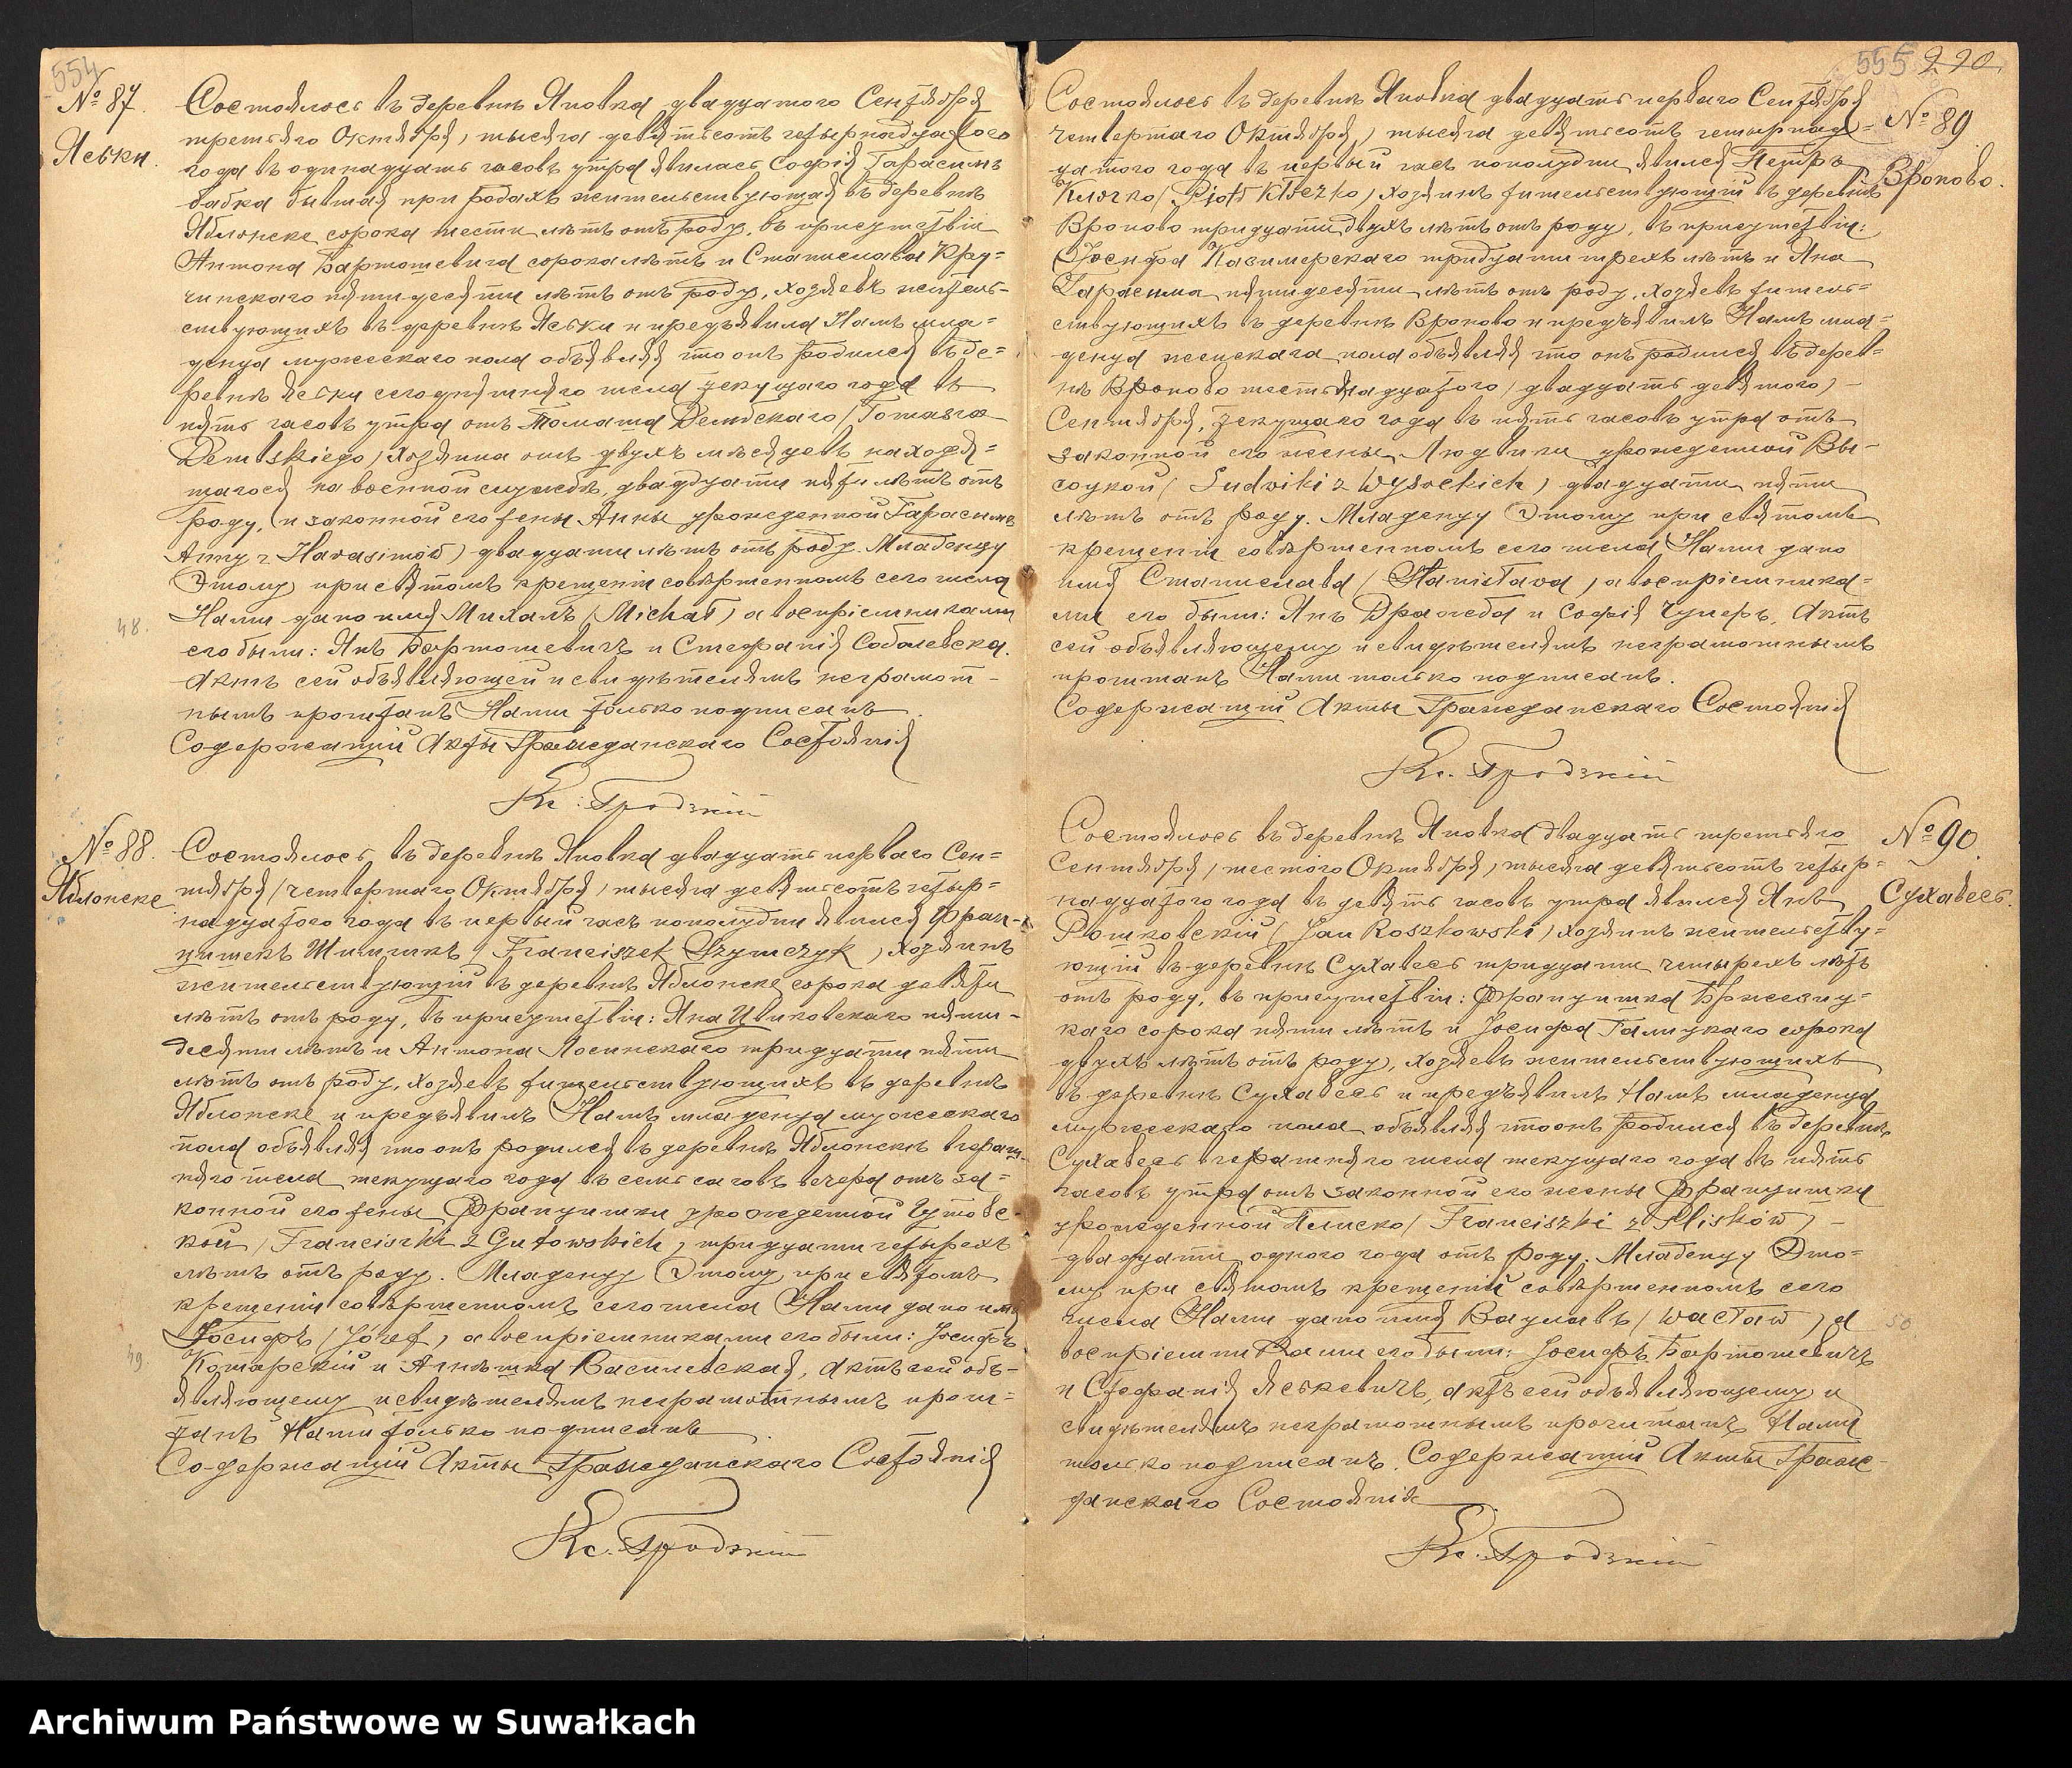 554
№ 87.
Яськи.
Состоялось въ деревнѣ Яновка двадцатого Сентября
третьяго Октября, тысяча девятьсотъ четырнадцатого
года въ одинадцать часовъ утра явилась Софія Гарасимъ
бабка бывшая при родахъ жительствующая въ деревнѣ
Яблонске сорока шести лѣтъ отъ роду, въ присутствіи
Антона Бартошевича сорока лѣтъ и Станислава Кру-
чинскаго пятидесяти лѣтъ отъ роду, хозяевъ житель-
ствующихъ въ деревнѣ Яськи и предъявила Намъ мла-
денца мужескаго пола объявляя что онъ родился въ де-
ревнѣ Яськи сегодняшняго числа текущаго года въ
пять часовъ утра отъ Томаша Дембскаго / Tomasza
Dembskiego / хозяина отъ двухъ мѣсяцевъ находя-
щагося на военной службѣ, двадцати пяти лѣтъ отъ
роду, и законной его жены Анны урожденной Гарасимъ
Anny z Harasimów) двадцати лѣтъ отъ роду. Младенцу
Этому при святомъ крещеніи совѣршенномъ сего числа
Нами дано имя Михалъ (Michał) а воспріемниками
его были: Янъ Бартошевичъ и Стефанія Соболевска.
Актъ сей объявляющей и свидѣтелямъ неграмот-
нымъ прочитанъ Нами только подписанъ.
Содержащій Акты Гражданскаго Состоянія
Кс. Гродзкій
48.
№ 88.
Яблонске
Состоялось въ деревнѣ Яновка двадцать перваго Сен-
тября / четвертаго Октября, тысяча девятьсотъ четыр-
надцатого года въ первый часъ пополудни явился Фран-
цишекъ Шимчикъ / Franciszek Szymczyk, хозяинъ
жительствующій въ деревнѣ Яблонске сорока девяти
лѣтъ отъ роду, въ присутствіи: Яна Цвиковскаго пяти-
десяти лѣтъ и Антона Лосинскаго тридцати пяти
лѣтъ отъ роду, хозяевъ жительствующихъ въ деревнѣ
Яблонске и предъявилъ Намъ младенца мужескаго
пола объявляя что онъ родился въ деревнѣ Яблонскѣ вчераш-
няго числа текущаго года въ семь часовъ вечера отъ за-
конной его жены Францишки урожденной Гутовс-
кой / Franciszki z Gutowskich, тридцати четырехъ
лѣтъ отъ роду. Младенцу Этому при святомъ
крещеніи совѣршенномъ сего числа Нами дано имя
Іосифъ / Józef, а воспріемниками его были: Іосифъ
Комарскій и Агнешка Василевская, Актъ сей объ-
являющему и свидѣтелямъ неграмотнымъ прочи-
танъ Нами только подписанъ.
Содержащій Акты Гражданскаго Состоянія
Кс. Гродзкій
49
555 220.
№ 89
Вроново.
Состоялось въ деревнѣ Яновка двадцать перваго Сентября
четвертаго Октября, тысяча девятьсотъ четырнад-
цатого года въ первый часъ пополудни явился Петръ
Ключко / Piotr Kłoczko, хозяинъ жительствующій въ деревнѣ
Вроново тридцати двухъ лѣтъ отъ роду, въ присутствіи:
Іосифа Казимерскаго тридцати трехъ лѣтъ и Яна
Гарасима пятидесяти лѣтъ отъ роду, хозяевъ житель-
ствующихъ въ деревнѣ Вроново и предъявилъ Намъ мла-
денца женскаго пола объявляя что онъ родился въ дерев-
нѣ Вроново шестьнадцатого / двадцать девятого, -
Сентября, текущаго года въ пять часовъ утра отъ
законной его жены Людвики урожденной Вы-
соцкой / Ludwiki z Wysockich) двадцати пяти
лѣтъ отъ роду. Младенцу Этому при святомъ
крещеніи совѣршенномъ сего числа Нами дано
имя Станислава / Stanisława, а воспріемника-
ми его были: Янъ Дражба и Софія Чуперъ, Актъ
сей объявляющему и свидѣтелямъ неграмотнымъ
прочитанъ Нами только подписанъ.
Содержащій Акты Гражданскаго Состоянія
Кс. Гродзкій
№ 90.
Сухавесь.
Состоялось въ деревнѣ Яновка двадцать третьяго
Сентября / шестого Октября, тысяча девятьсотъ четыр-
надцатого года въ девять часовъ утра явился Янъ
Рошковскій / Jan Roszkowski, хозяинъ жительству-
ющій въ деревнѣ Сухавесь тридцати четырехъ лѣтъ
отъ роду, въ присутствіи: Францишка Бржезиц-
каго сорока пяти лѣтъ и Іосифа Галицкаго сорока
двухъ лѣтъ отъ роду, хозяевъ жительствующихъ
въ деревнѣ Сухавесь и предъявилъ Намъ младенца
мужескаго пола объявляя что онъ родился въ деревнѣ
Сухавесь вчерашняго числа текущаго года въ пять
часовъ утра отъ законной его жены Францишки
урожденной Плиско / Franciszki z Plisków) -
двадцати одного года отъ роду. Младенцу Это-
му при святомъ крещеніи совѣршенномъ сего
числа Нами дано имя Вацлавъ / Wacław, а
воспріемниками его были: Іосифъ Бартошевичъ
и Стефанія Яськевичъ, Актъ сей объявляющему и
свидѣтелямъ неграмотнымъ прочитанъ Нами
только подписанъ. Содержащій Акты Граж-
данскаго Состоянія
Кс. Гродзкій
50.
Archiwum Państwowe w Suwałkach